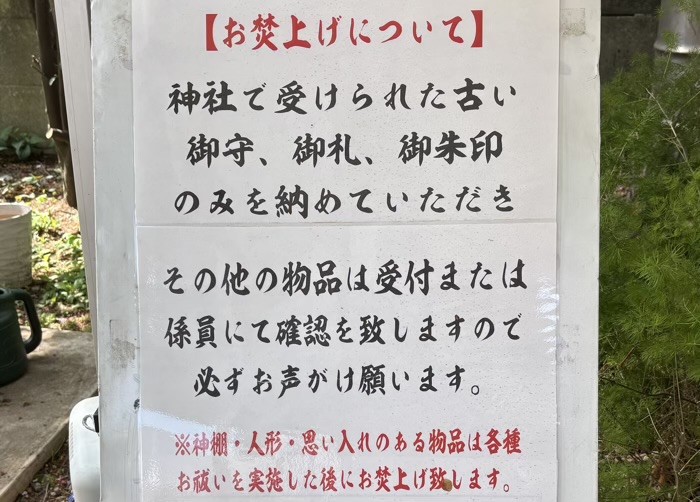 【お焚上げについて】
神社で受けられた古い
御守、御札、御朱印
のみを納めていただき
その他の物品は受付または
係員にて確認を致しますので
必ずお声がけ願います。
※神棚・人形・思い入れのある物品は各種
お祓いを実施した後にお焚上げ致します。